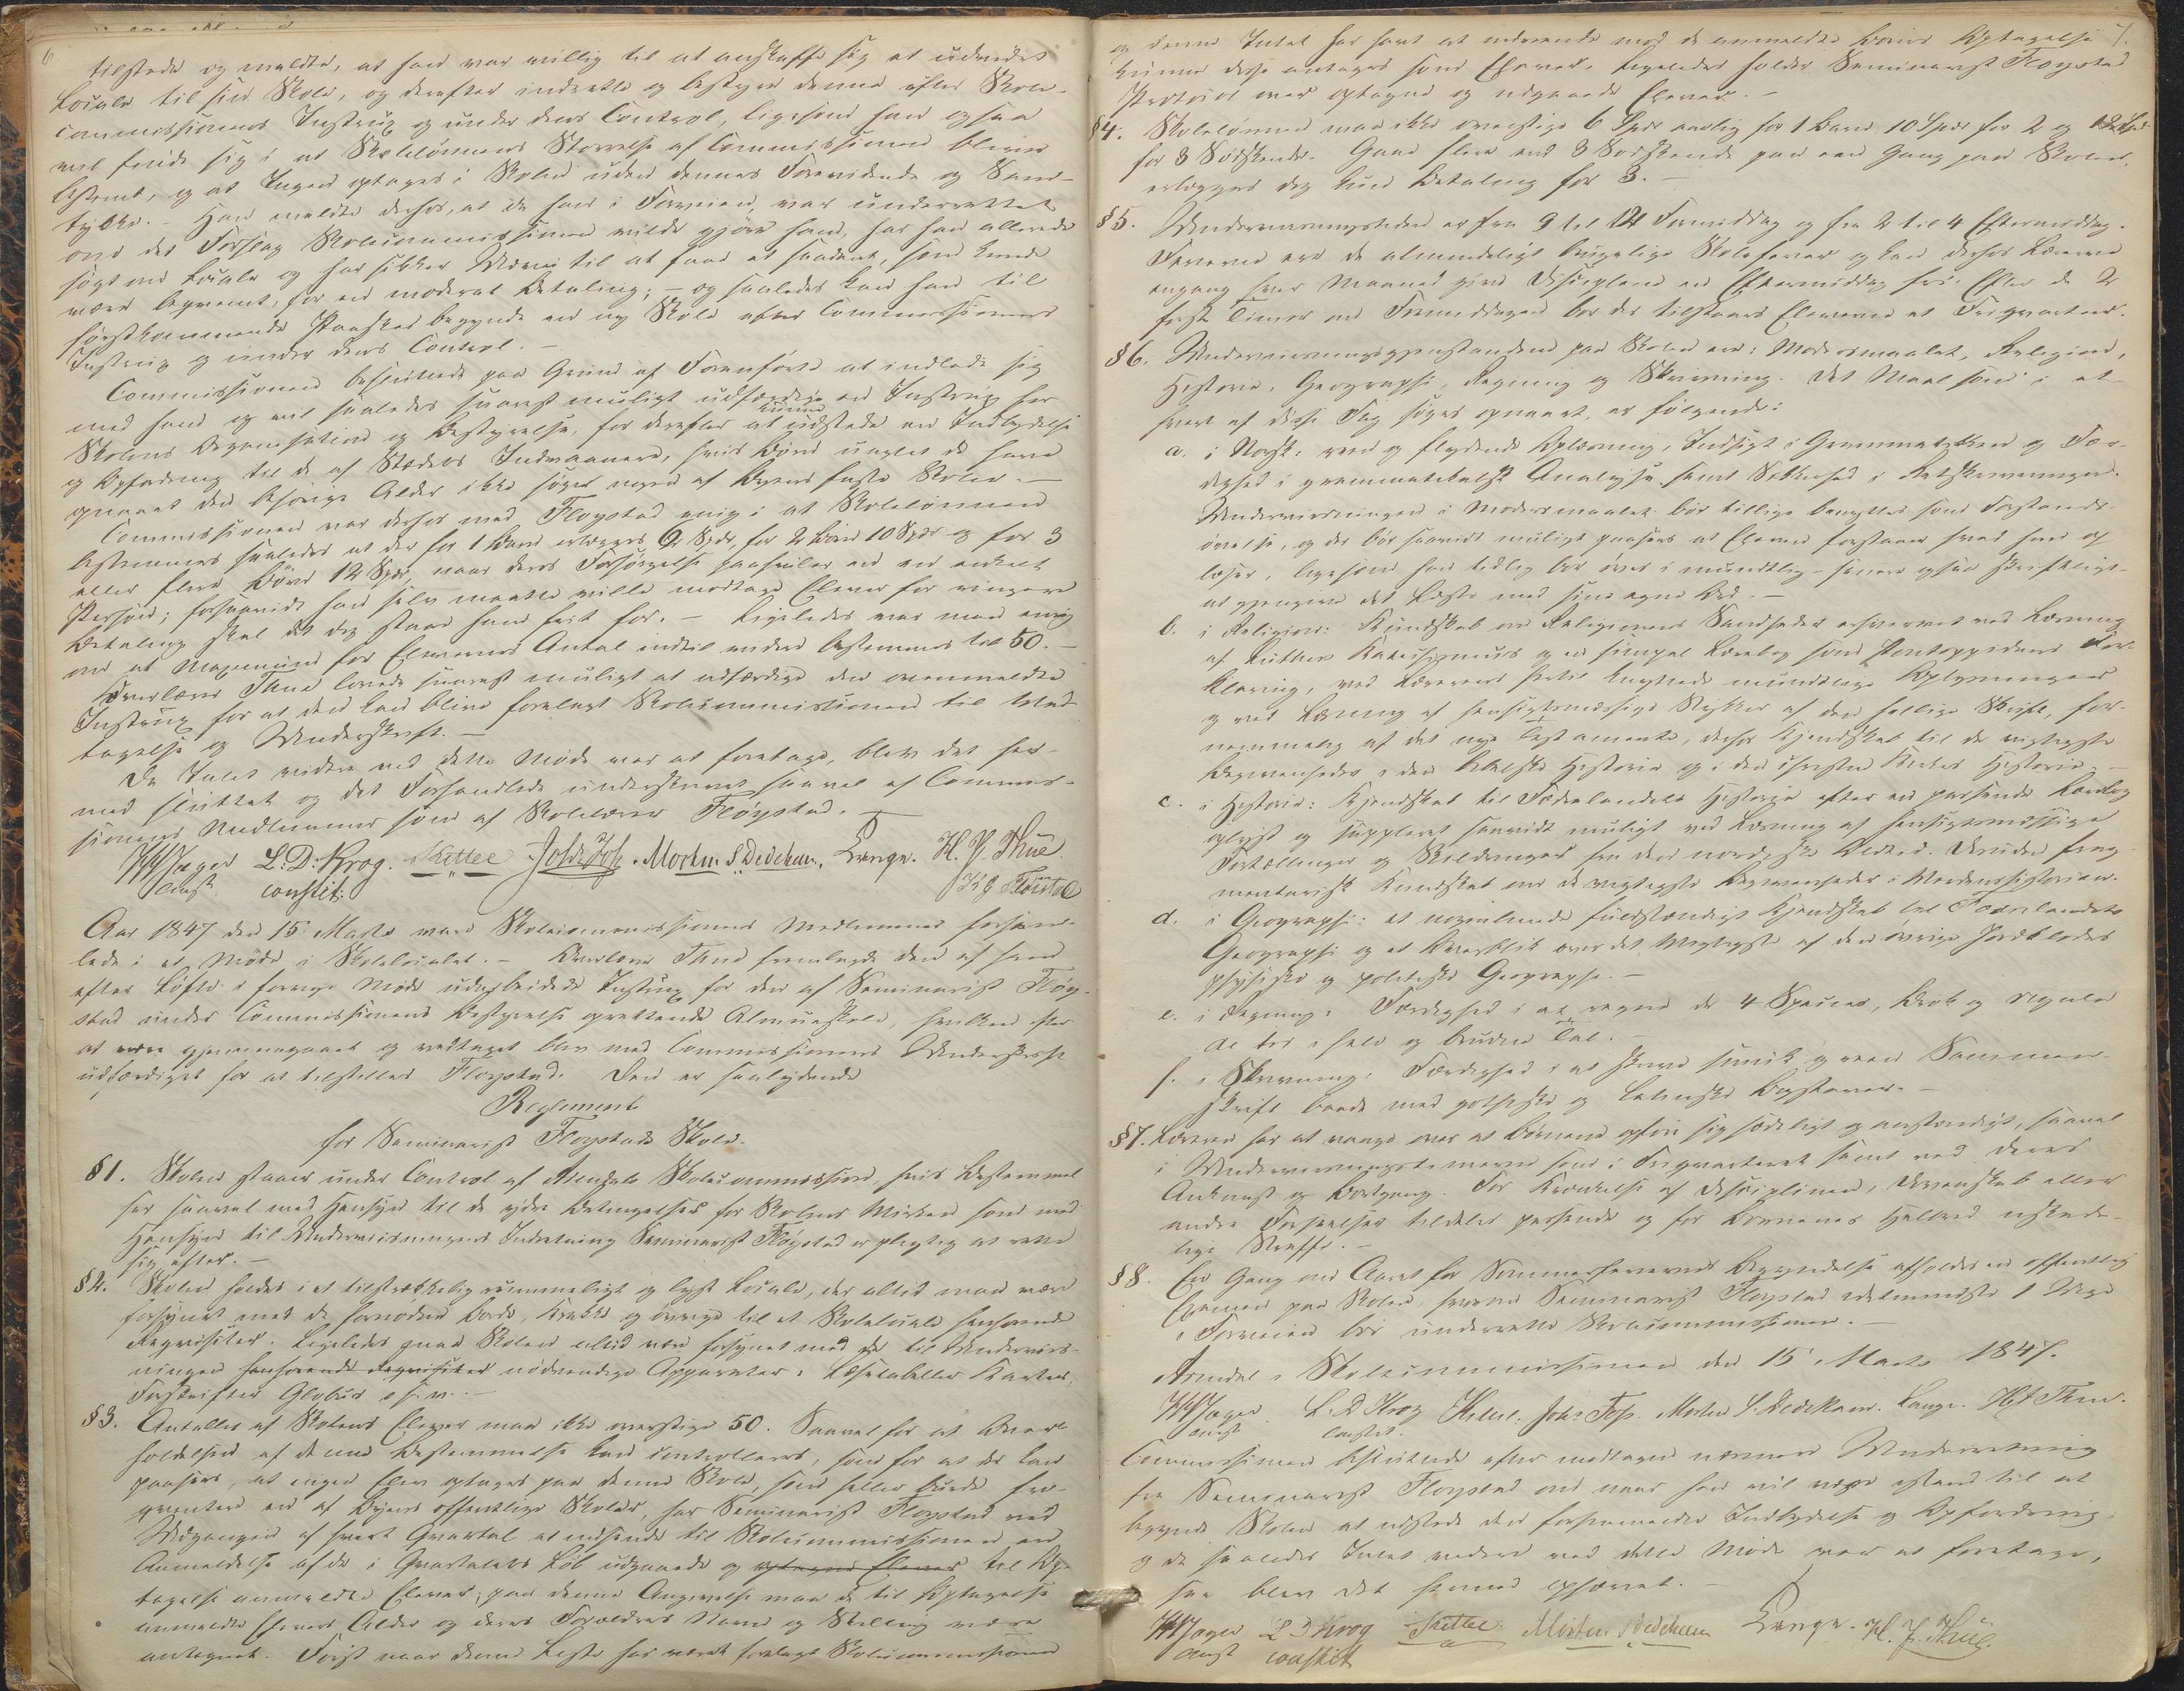 6
tilstede og meldte, at han var villig til at anskaffe sig et udvidet
Locale til sin Skole, og derefter indrette og bestyre denne efter Skole-
commissionens Instrux og under dens Control, ligesom han ogsaa
vil finde sig i at Skolelønnens Størrelse af Commissionen bliver
bestemt, og at Ingen optages i Skolen uden dennes Forevidende og Sam-
tykke. - Han meldte derhos, at da han i Forveien var underrettet
om det Forslag Skolecommissionen vilde gjøre ham, har han allerede
søgt om Locale og har sikker Udvei til at faae et saadant, som kunde
være beqvemt, for en moderat Betaling; - og saaledes kan han til
førstkommende Paaske begynde en ny Skole efter Commissionens
Instrux og under dens Control. -
Commissionen besluttede paa Grund af Foranførte at indlade sig
med ham og vil saaledes snarest muligt udfærdige en Instrux for
Skolens Organisation og Bestyrelse, for derefter at kunne udstede en Indbydelse
og Opfordring til de af Stedets Indvaanere, hvis Børn uagtet de have
opnaaet den behørige Alder ikke søger nogen af Byens faste Skoler. -
Commissionen var derhos med Fløystad enig i at Skolelønnen
bestemmes saaledes at der for 1 Barn erlægges 6 Spd, for 2 Børn 10 Spd og for 3
eller flere Børn 12 Spd, naar deres Forsørgelse paahviler en og enkelt
Person; forsaavidt han selv maatte ville modtage Elever for ringere
Betaling skal det dog staae ham frit for. - Ligeledes var man enig
om at Maximum for Elevernes Antal indtil videre bestemmes til 50. -
Overlærer Thue lovede snarest muligt at udfærdige den ovenmeldte
Instrux for at den kan blive forelagt Skolecommissionen til Ved-
tagelse og Underskrift. -
Da Intet videre ved dette Møde var at foretage, blev det her-
med sluttet og det Forhandlede underskrevet saavel af Commis-
sionens Medlemmer som af Skolelærer Fløystad. -
Jager L. D. Krog. Kittel Johs Fos. Morten S Dedekam. Lange. H. J. Thue
const constit.
Aar 1847 den 15 Marts vare Skolecommissionens Medlemmer forsam-
lede i et Møde i Skolelocalet. - Overlærer Thue fremlagde den af ham
efter Løfte i forrige Møde udarbeidede Instrux for den af Seminarist Fløy-
stad under Commissionens Bestyrelse oprettende Almueskole, hvilken efter
at være gjennemgaaet og vedtaget blev med Commissionens Underskrift
udfærdiget for at tilstilles Fløystad. Den er saalydende
Reglement
for Seminarist Fløystads Skole.
§1. Skolen staaer under Control af Arendals Skolecommission, hvis Bestemmel-
ser saavel med Hensyn til de ydre Betingelser for Skolens Virken som med
Hensyn til Underviisningens Indretning Seminarist Fløystad er pligtig at rette
sig efter. -
§2. Skolen holdes i et tilstrækkelig rummeligt og lyst Locale, der altid maa være
forsynet med de fornødne Borde, Bænke og øvrige til et Skolelocale henhørende
Reqvisiter. Ligeledes maa Skolen altid være forsynet med de til Underviis-
ningen henhørende Reqvisiter nødvendige Apparater: Læsetabeller Karter,
Forskrifter Globus o. s. v. -
§3. Antallet af Skolens Elever maa ikke overstige 50. Saavel for at Over-
holdelsen af denne Bestemmelse kan controlleres, som for at det kan
paasees, at ingen Elev optages paa denne Skole, som heller burde fre-
qventere en af Byens offentlige Skoler, har Seminarist Fløystad ved
Udgangen af hvert Qvartal at indsende til Skolecommissionen en
Anmeldelse af de i Qvartalets Løb udgaaede og optagne Elever til Op-
tagelse anmeldte Elever; paa denne Angivelse maa de til Optagelse
anmeldte Elevers Alder og deres Forældres Navne og Stilling være
antegnet. Først naar denne Liste har været forelagt Skolecommissionen
7.
og denne Intet har havt at indvende mod de anmeldte Børns Optagelse
kunne disse antages som Elever. Ligeledes holder Seminarist Fløystad
Protocol over optagne og udgaaede Elever. -
§4. Skolelønnen maa ikke overstige 6 Spd aarlig for 1 Barn 10 Spd for 2 og 12 Spd
for 3 Sødskende. Gaae flere end 3 Sødskende paa een Gang paa Skolen,
erlægges dog kun Betaling for 3. -
§5. Underviisningstiden er fra 9 til 12 Formiddag og fra 2 til 4 Eftermiddag.
Ferierne ere de almindeligt brugelige Skoleferier og kan derhos Læreren
engang hver Maaned give Disciplene en Eftermiddag fri. Efter de 2
første Timer om Formiddagen bør der tilstaaes Eleverne et Friqvarteer.
§6. Underviisningsgjenstandene paa Skolen ere: Modersmaalet, Religion,
Historie, Geographi, Regning og Skrivning. Det Maal som i et-
hvert af disse Fag søges opnaaet, er følgende:
a. i Norsk: reen og flydende Oplæsning, Indsigt i Grammatikken og Fær-
dighed i grammatikalsk Analyse samt Sikkerhed i Retskrivningen.
Underviisningen i Modersmaalet bør tillige benyttes som Forstands-
øvelse, og der bør saavidt muligt paasees at Eleven forstaaer hvad han op-
læser, ligesom han tidlig bør øves i mundtlig - senere ogsaa skriftligt -
at gjengive det Læste med sine egne Ord. -
b. i Religion: Kundskab om Religionens Sandheder erhvervet ved Læsning
af Luthers Katechismus og en simpel Lærebog som Pontoppidans For-
klaring, ved Lærerens hertil knyttede mundtlige Oplysninger
og ved Læsning af hensigtsmæssige Stykker af den hellige Skrift, for-
nemmelig af det nye Testamente, derhos Kjendskab til de vigtigste
Begivenheder i den bibelske Historie og i den christne Kirkes Historie. -
c. i Historie: Kjendskab til Fædrelandets Historie efter en passende Lærebog
oplyst og suppleret saavidt muligt ved Læsning af hensigtsmæssige
Fortællinger og Skildringer fra den nordiske Oldtid. Desuden frag-
mentarisk Kundskab om de vigtigste Begivenheder i Verdenshistorien.
d. i Geographi: et nogenlunde fuldstændigt Kjendskab til Fædrelandets
Geographi og et Overblik over det Vigtigste af den øvrige Jordklodes
physiske og politiske Geographi. -
e. i Regning: Færdighed i at regne de 4 Species, Brøk og regula
de tri i hele og brudne Tal. -
f. i Skrivning: Færdighed i at skrive smuk og reen Sammen-
skrift baade med gothiske og latinske Bogstaver. -
§7. Læreren har at vaage over at Børnene opføre sig sædeligt og anstændigt, saavel
i Underviisningstimerne som i Friqvarteret samt ved deres
Ankomst og Bortgang. For Krænkelse af Disciplinen, Dovenskab eller
andre Forseelser tildeles passende og for Børnenes Helbred uskade-
lige Straffe. -
§8. En Gang om Aaret før Sommerferiernes Begyndelse afholdes en offentlig
Examen paa Skolen, hvorom Seminarist Fløystad idetmindste 1 Uge
i Forveien bør underrette Skolecommissionen. -
Arendal i Skolecommissionen den 15 Marts 1847.
Jager L. D Krog Kittel. Johs Fos. Morten S. Dedekam. Lange. H J Thue.
const constit.
Commissionen besluttede efter modtagen nærmere Underretning
fra Seminarist Fløystad om naar han vil være istand til at
begynde Skolen at udstede den forommeldte Indbydelse og Opfordring,
og da saaledes Intet videre ved dette Møde var at foretage,
saa blev det hermed ophævet. -
Jager L D Krog Kittel Morten S Dedekam Lange. H. J. Thue.
const constit